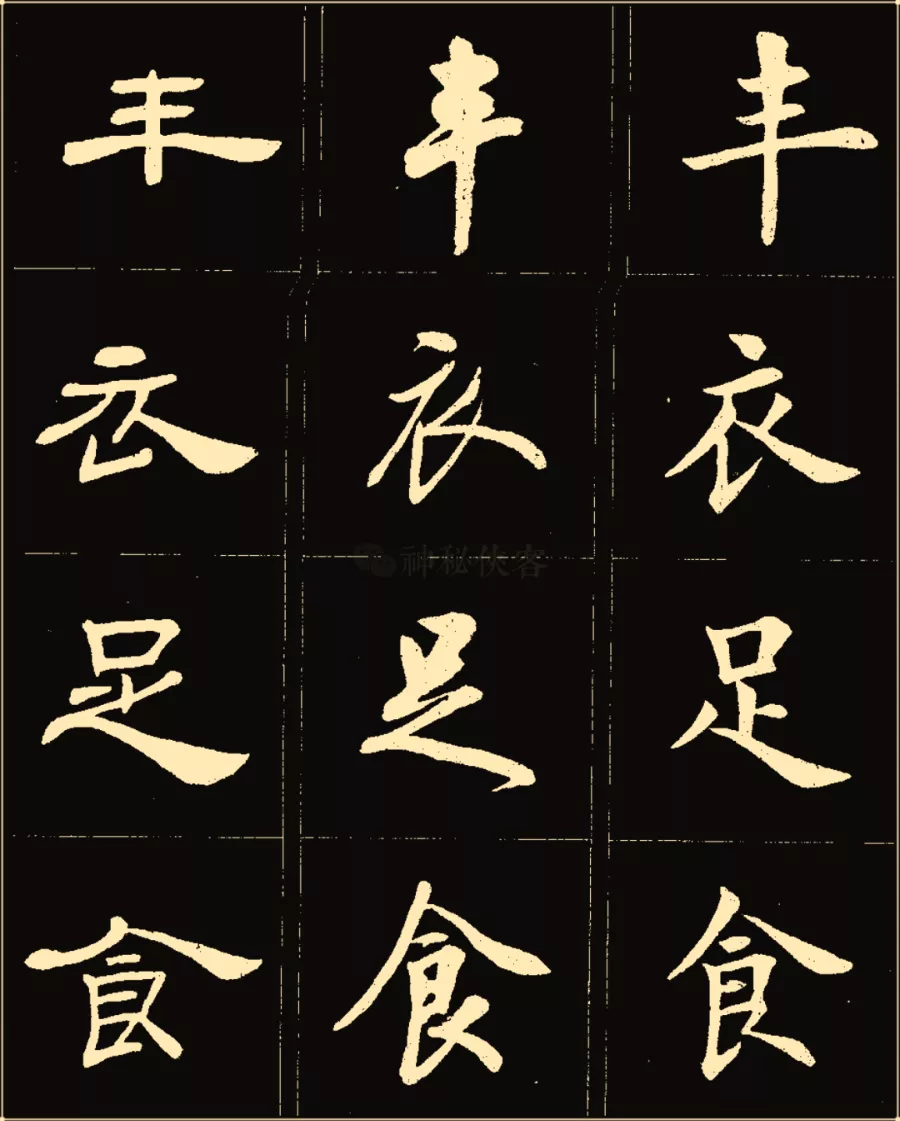 丰 丰 丰
衣 衣 衣
神秘侠客
足 足 足
食 食 食